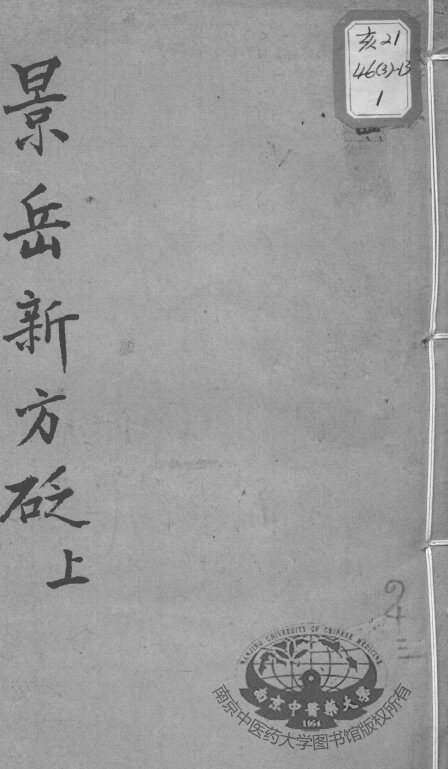 景岳新方砭
上
亥21
46(3)-13
1
24
三
NANJING UNIVERSITY OF CHINESE MEDICINE
南京中醫藥大學
1954
南京中医药大学图书馆版权所有